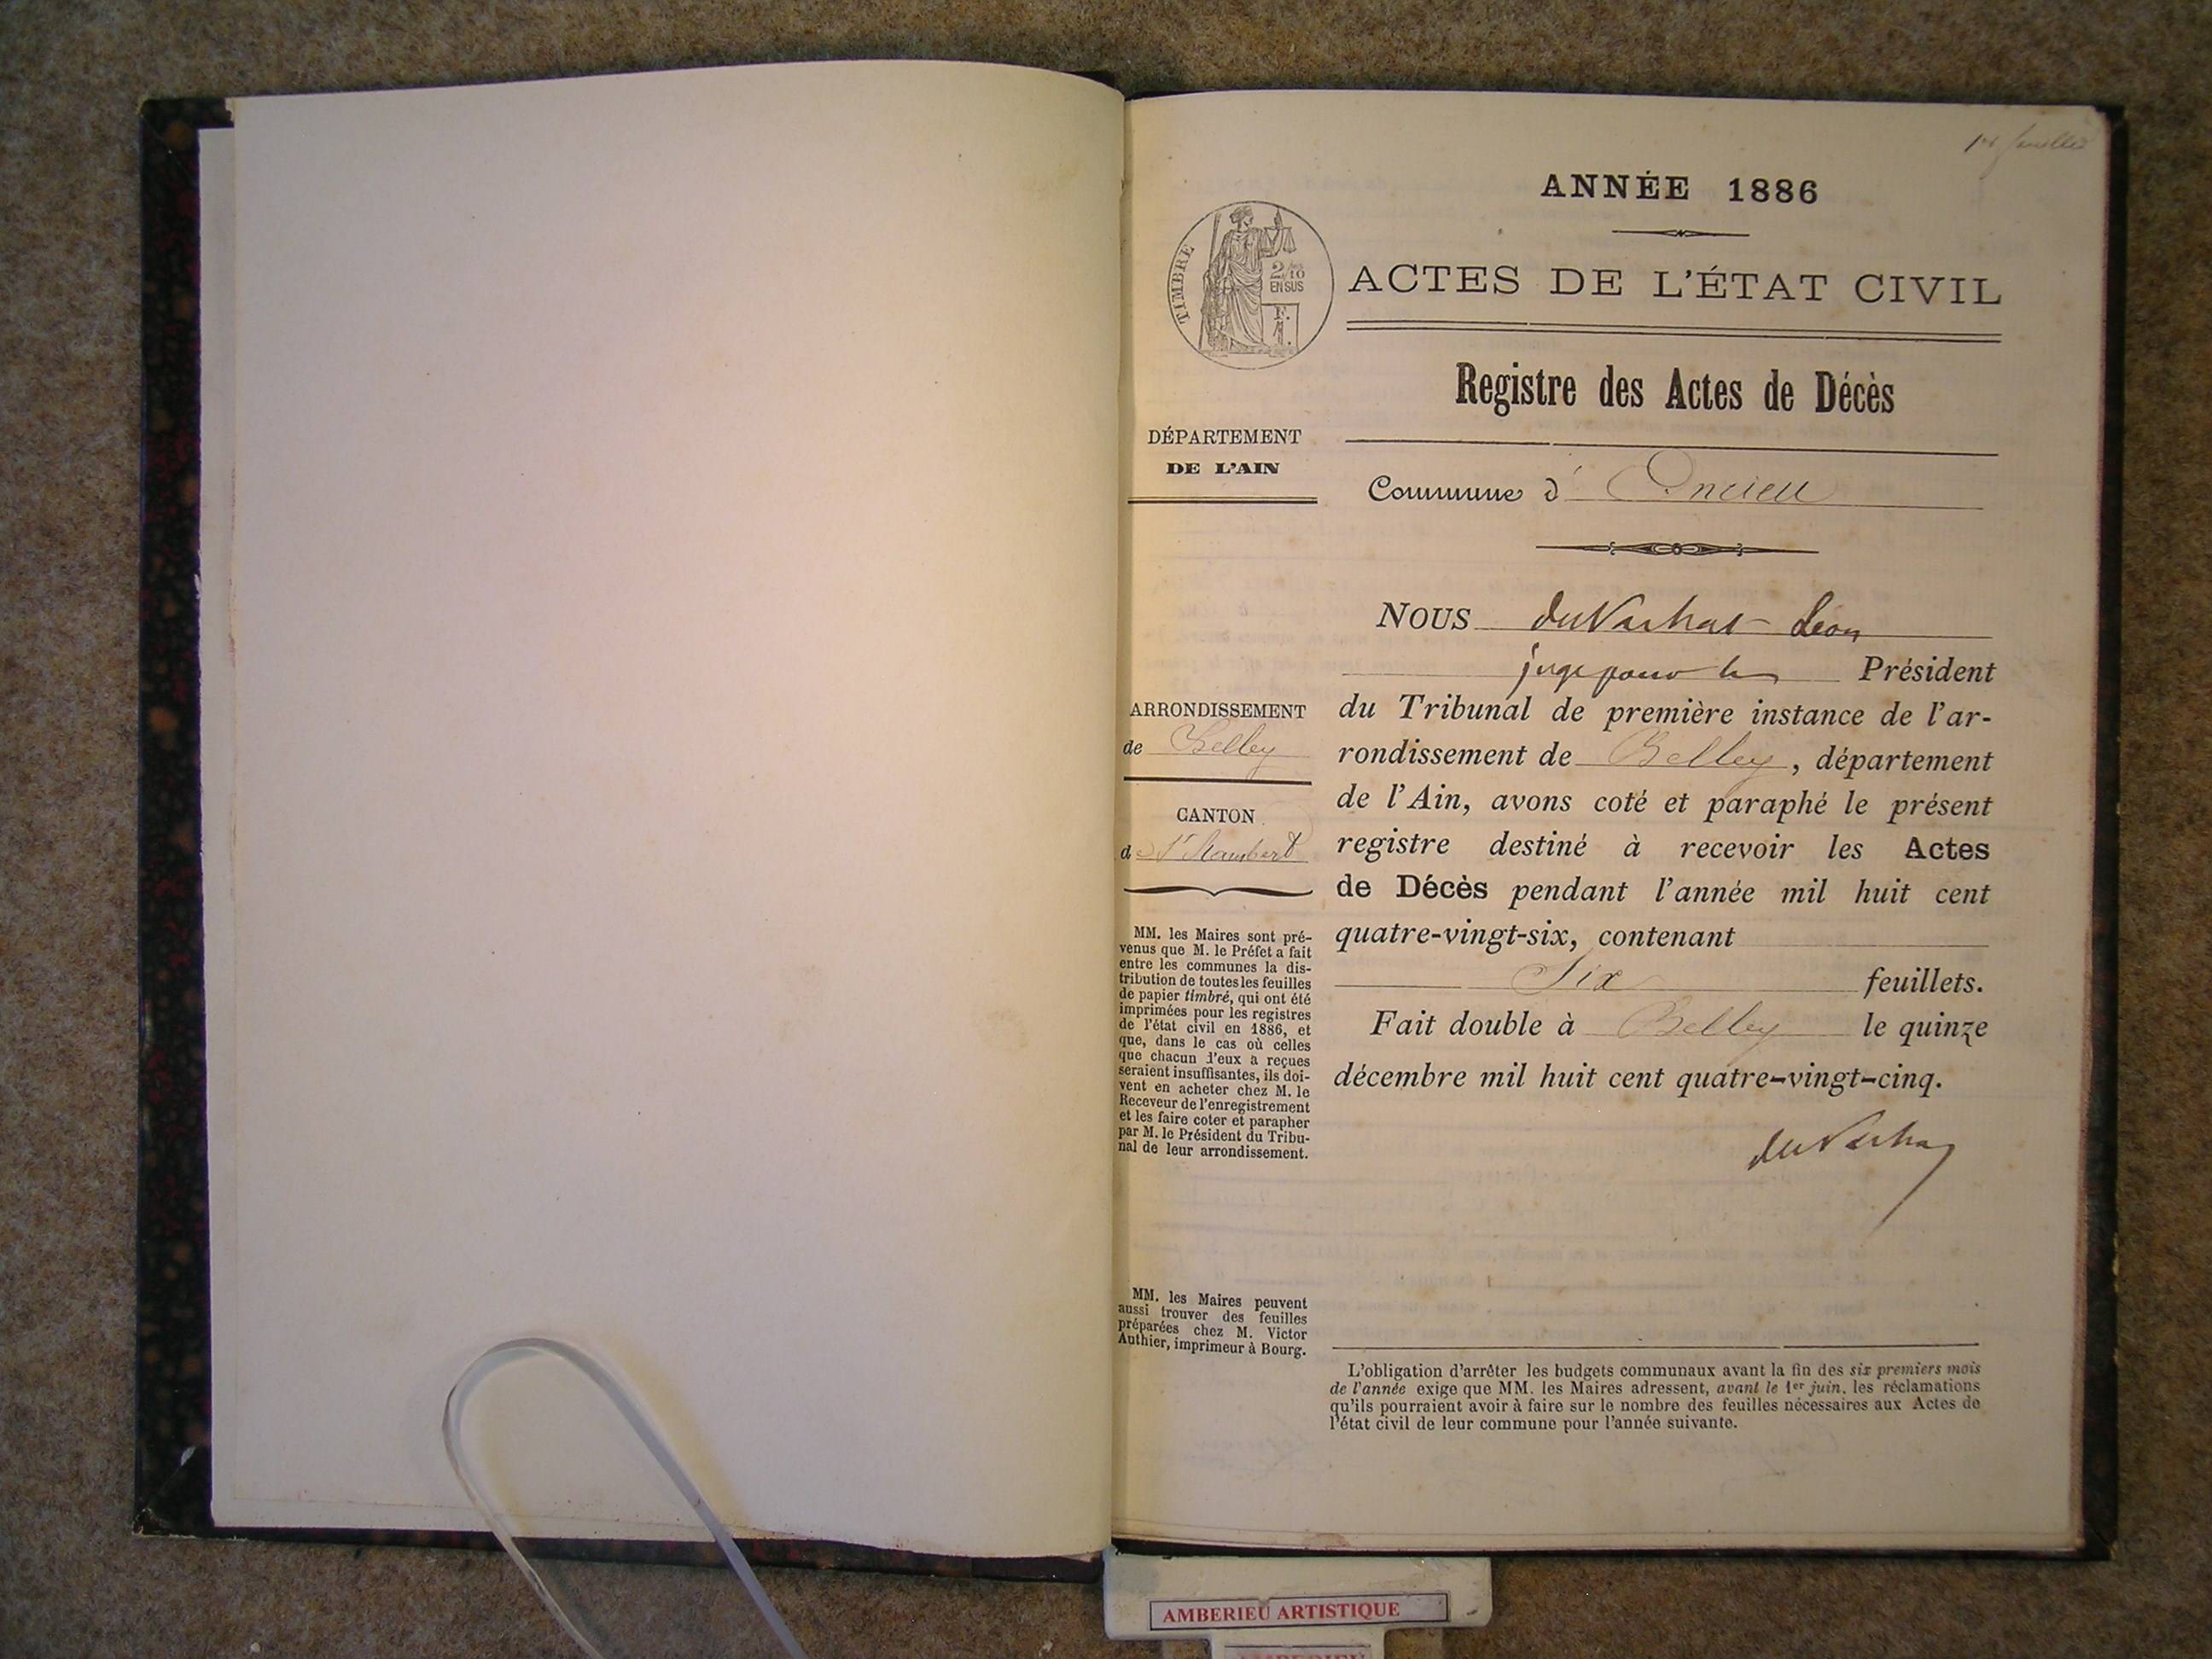 1er feuillet
ANNÉE 1886
TIMBRE
2/10
EN SUS
F.
1.
ACTES DE L'ÉTAT CIVIL
Registre des Actes de Décès
DÉPARTEMENT
DE L'AIN
Commune d' Oncieu
NOUS Léon
juge pour le Président
du Tribunal de première instance de l'ar-
rondissement de Belley, département
de l'Ain, avons coté et paraphé le présent
registre destiné à recevoir les Actes
de Décès pendant l'année mil huit cent
quatre-vingt-six, contenant
Six feuillets.
Fait double à Belley le quinze
décembre mil huit cent quatre-vingt-cinq.
ARRONDISSEMENT
de Belley
CANTON
de St Rambert
MM. les Maires sont pré-
venus que M. le Préfet a fait
entre les communes la dis-
tribution de toutes les feuilles
de papier timbré, qui ont été
imprimées pour les registres
de l'état civil en 1886, et
que, dans le cas où celles
que chacun d'eux a reçues
seraient insuffisantes, ils doi-
vent en acheter chez M. le
Receveur de l'enregistrement
et les faire coter et parapher
par M. le Président du Tribu-
nal de leur arrondissement.
MM. les Maires peuvent
aussi trouver des feuilles
préparées chez M. Victor
Authier, imprimeur à Bourg.
L'obligation d'arrêter les budgets communaux avant la fin des six premiers mois
de l'année exige que MM. les Maires adressent, avant le 1er juin, les réclamations
qu'ils pourraient avoir à faire sur le nombre des feuilles nécessaires aux Actes de
l'état civil de leur commune pour l'année suivante.
AMBERIEU ARTISTIQUE
AMBERIEU